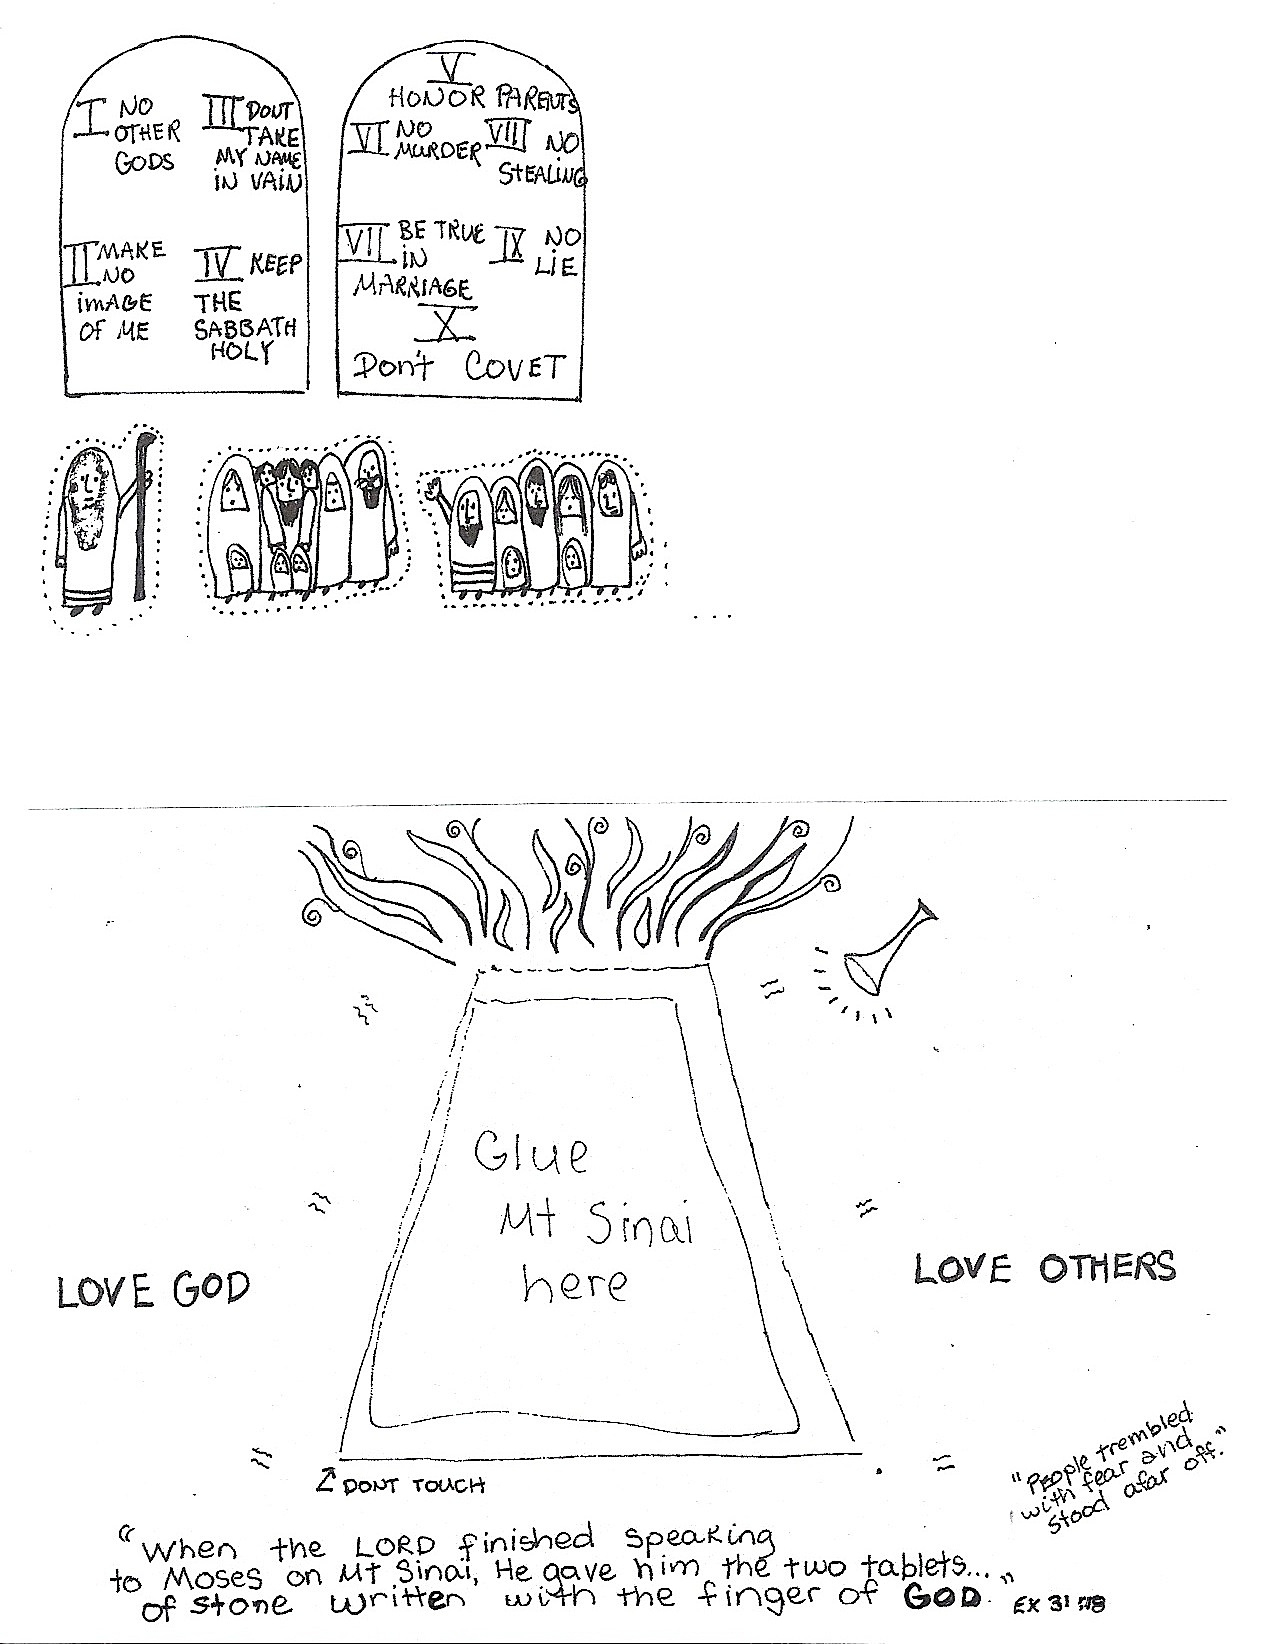 I NO
OTHER
GODS
III DOUT
TAKE
MY NAME
IN VAIN
II MAKE
NO
IMAGE
OF ME
IV KEEP
THE
SABBATH
HOLY
V
HONOR PARENTS
VI NO
MURDER
VIII NO
STEALING
VII BE TRUE
IN
MARRIAGE
IX NO
LIE
X
Don't COVET
Glue
Mt Sinai
here
LOVE GOD
LOVE OTHERS
DONT TOUCH
"PEOPLE trembled
with fear and
stood afar off."
"When the LORD finished speaking
to Moses on Mt Sinai, He gave him the two tablets..."
of stone written with the finger of GOD. EX 31:18